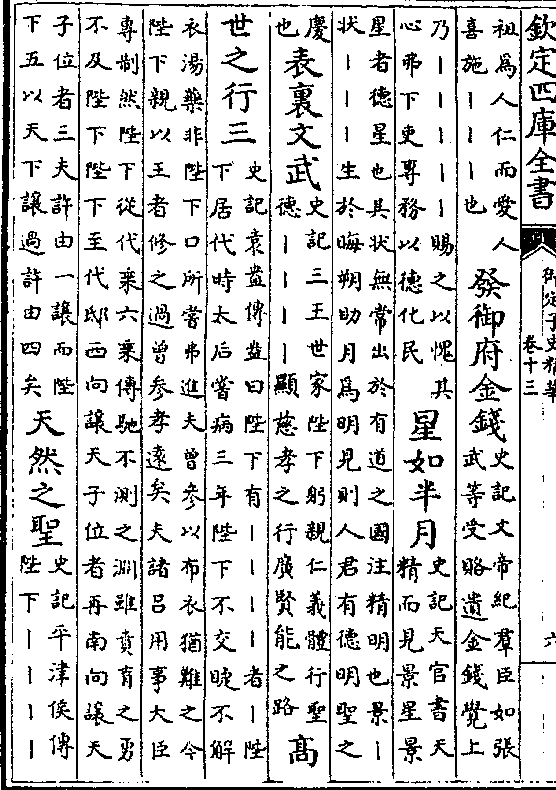 欽定四庫全書
御定子史精華
卷十三
六
祖爲人仁而愛人
喜施｜｜｜也
發御府金錢
史記文帝紀羣臣如張
武等受賂遺金錢覺上
乃｜｜｜｜｜賜之以愧其
心弗下吏專務以德化民
星如半月
史記天官書天
精而見景星景
星者德星也其狀無常出於有道之國注精明也景｜
狀｜｜｜生於晦朔助月爲明見則人君有德明聖之
慶
也
表裏文武
史記三王世家陛下躬親仁義體行聖
德｜｜｜｜顯慈孝之行廣賢能之路
髙
世之行三
史記袁盎傳盎曰陛下有｜｜｜｜者｜陛
下居代時太后嘗病三年陛下不交睫不解
衣湯藥非陛下口所嘗弗進夫曾參以布衣猶難之今
陛下親以王者修之過曾參孝遠矣夫諸呂用事大臣
專制然陛下從代乘六乘傳馳不測之淵雖賁育之勇
不及陛下陛下至代邸西向讓天子位者再南向讓天
子位者三夫許由一讓而陛
下五以天下讓過許由四矣
天然之聖
史記平津侯傳
陛下｜｜｜｜